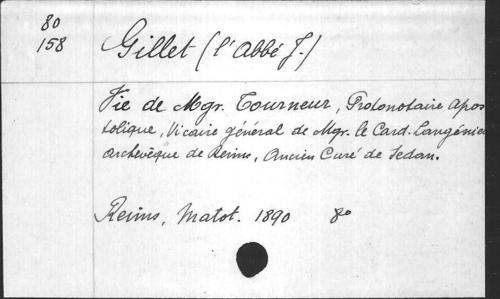 80
158
Gillet (l'abbé J.)
Vie de Mgr. Tourneur, Protonotaire apos
tolique, Vicaire général de Mgr. le Card. Langénie
archevêque de Reims, Ancien Curé de Sedan.
Reims, Matot. 1890 8º